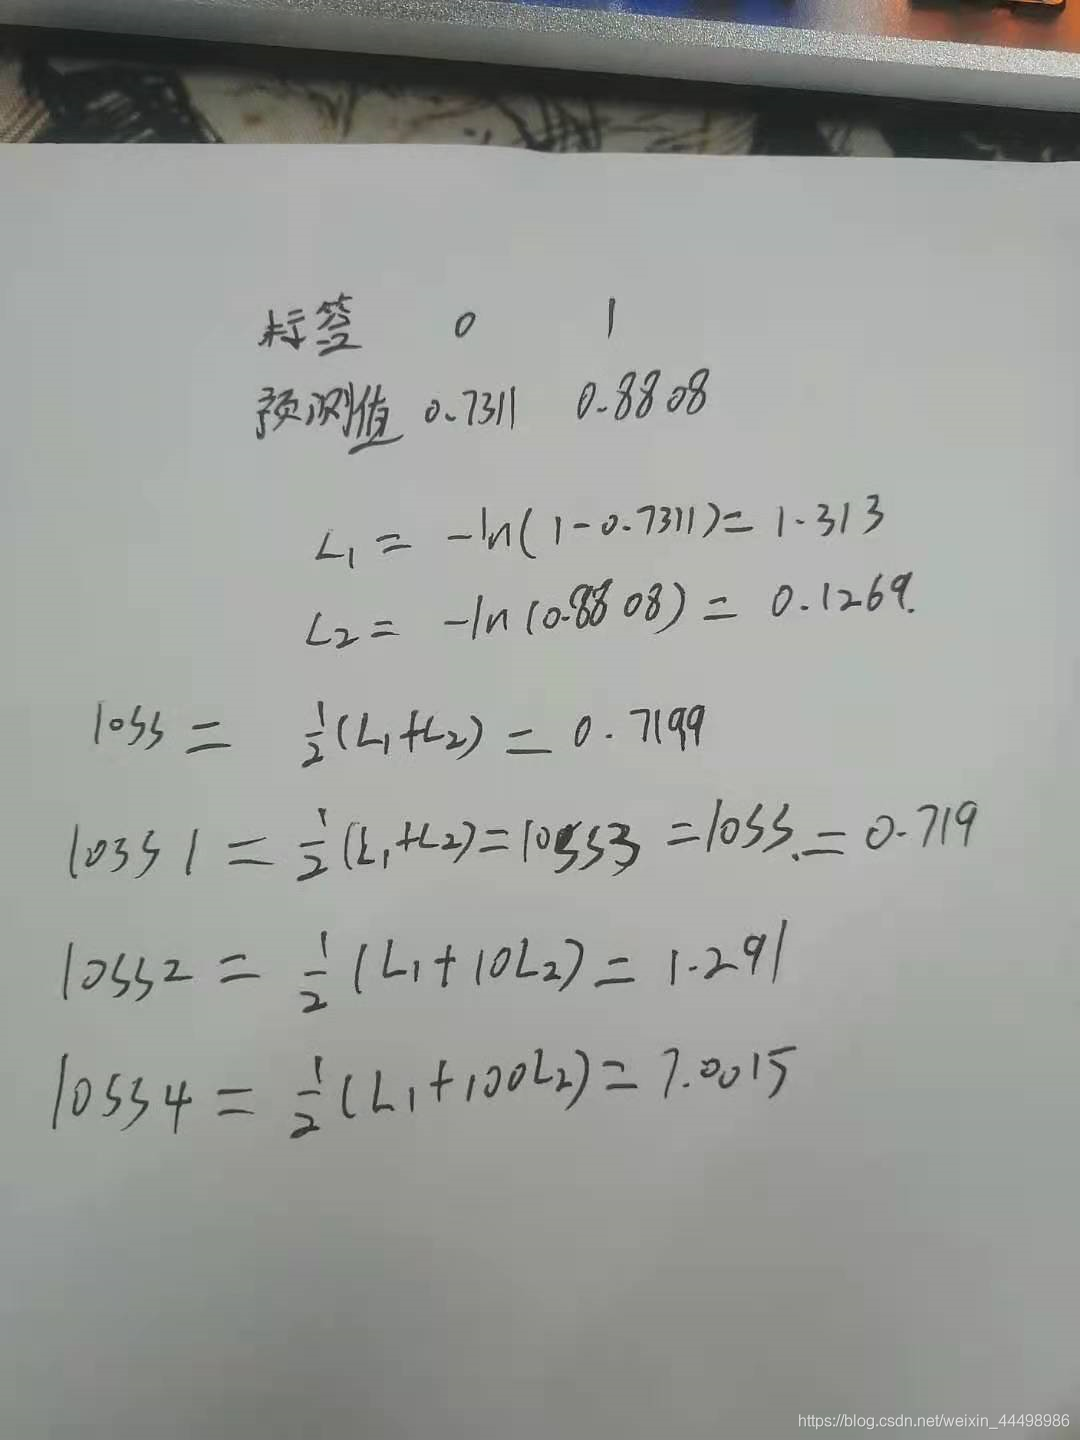 标签 0 1
预测值 0.7311 0.8808
L1 = -ln(1-0.7311) = 1.313
L2 = -ln(0.8808) = 0.1269.
loss = 1/2(L1+L2) = 0.7199
loss1 = 1/2(L1+L2) = loss3 = loss. = 0.719
loss2 = 1/2(L1+10L2) = 1.291
loss4 = 1/2(L1+100L2) = 7.0015
https://blog.csdn.net/weixin_44498986